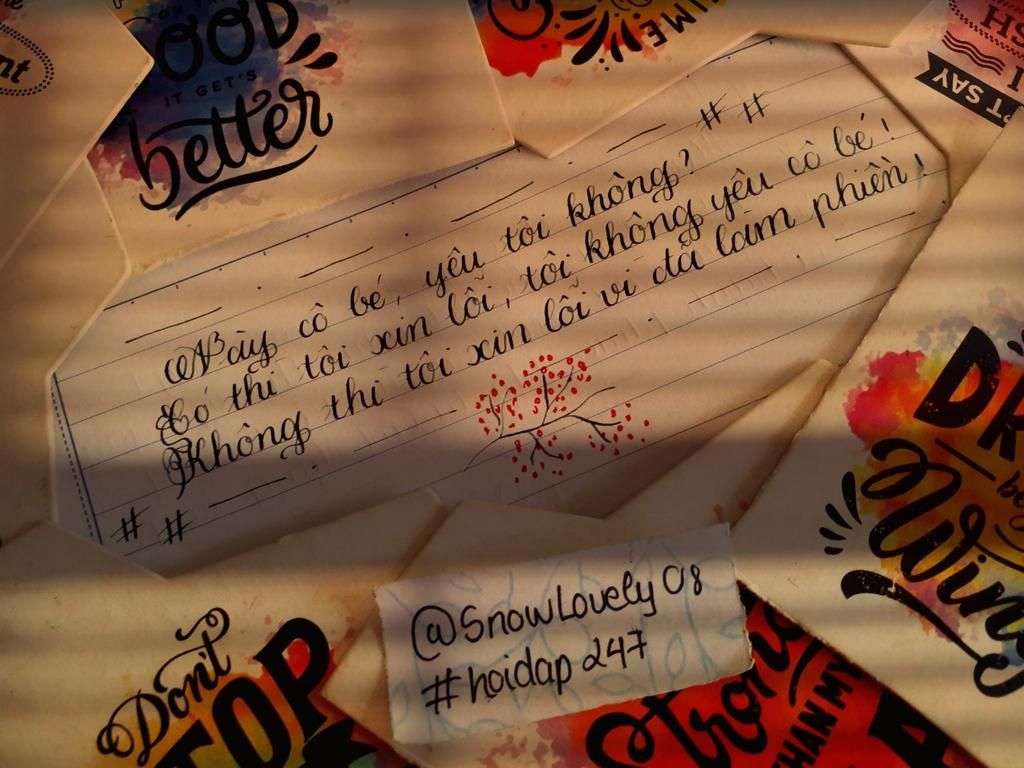 nt
ON THE
OOD
IT GET'S
better
TIME
SH
I
PT SAY
# #
Này cô bé, yêu tôi không?
Có thì tôi xin lỗi, tôi không yêu cô bé!
Không thì tôi xin lỗi vì đã làm phiền!
# #
@SnowLovely 08
#hoidap 247
Don't
TOP
trong
THAN MY
A
DR
be
Win